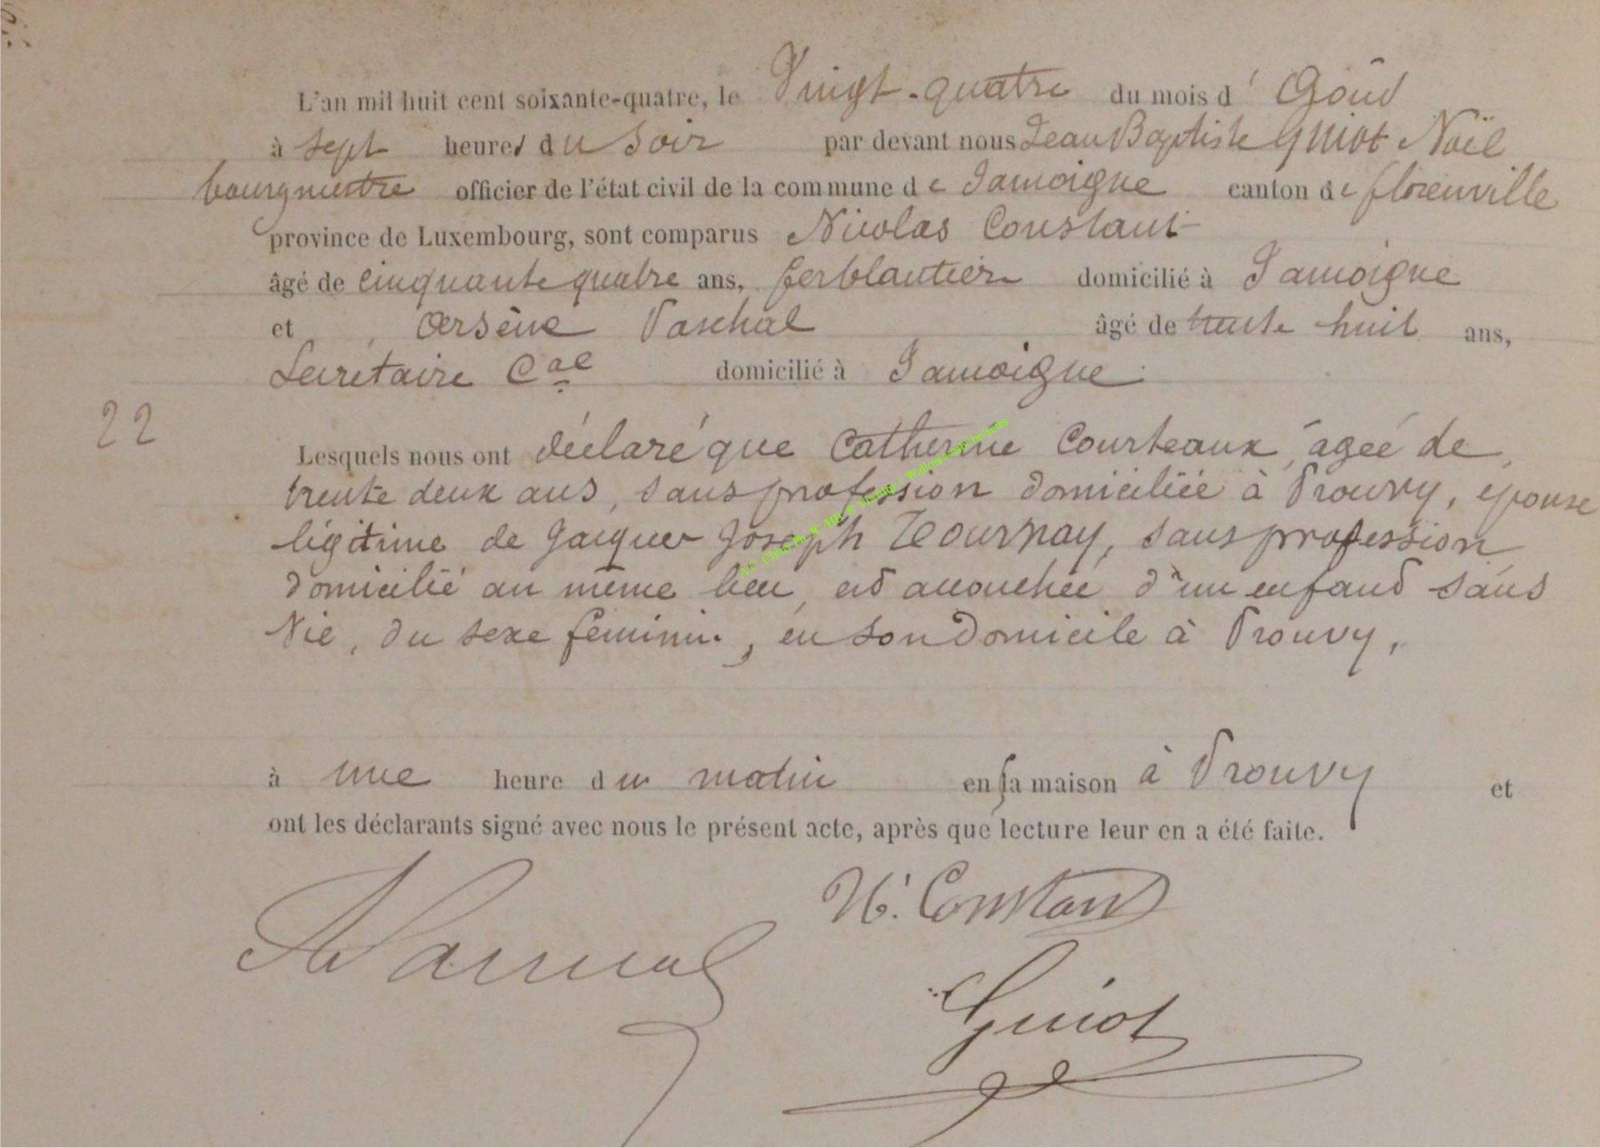 L'an mil huit cent soixante-quatre, le Vingt-quatre du mois d' Août
à sept heures du Soir par devant nous Jean Baptiste Guiot Noël
bourgmestre officier de l'état civil de la commune de Jamoigne canton de florenville
province de Luxembourg, sont comparus Nicolas Constant
âgé de cinquante quatre ans, ferblantier domicilié à Jamoigne
et Arsène Paschal âgé de trente huit ans,
Secretaire Cal domicilié à Jamoigne
22
Lesquels nous ont déclaré que Catherine Courteaux, agée de
trente deux ans, sans profession domiciliée à Prouvy, epouse
légitime de Jacques Joseph Tournay, sans profession
domicilié au même lieu, est accouchée d'un enfant sans
Vie, du sexe feminin, en son domicile à Prouvy,
à une heure du matin en sa maison à Prouvy et
ont les déclarants signé avec nous le présent acte, après que lecture leur en a été faite.
N. Constant
Guiot